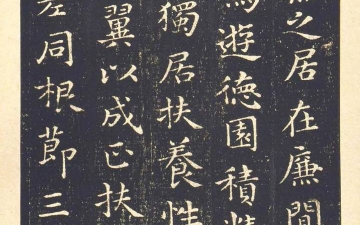 之居在廉間
遊德園積精
獨居扶養性
翼以成正扶
同根節三